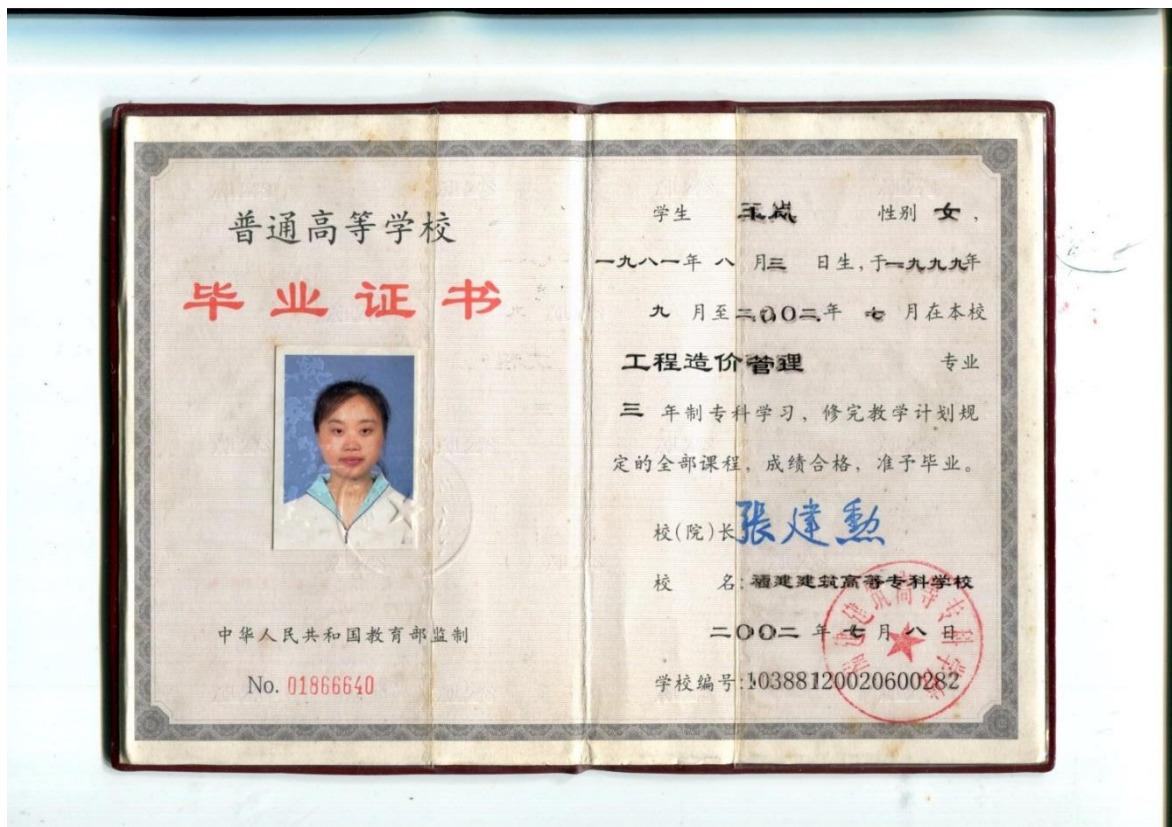 普通高等学校
毕业证书
中华人民共和国教育部监制
No. 01866640
学生 王岚 性别 女，
一九八一年 八 月三 日生，于一九九九年
九 月至二〇〇二年 七 月在本校
工程造价管理 专业
三 年制专科学习，修完教学计划规
定的全部课程，成绩合格，准予毕业。
校(院)长 张建勳
校 名：福建建筑高等专科学校
二〇〇二 年 七 月 八 日
学校编号：10388120020600282
福建建筑高等专科学校